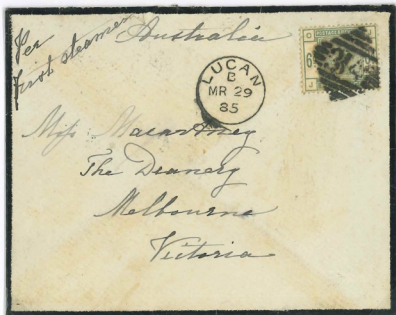 Per
first steamer
Australia
LUCAN
B
MR 29
85
Miss Macartney
The Deanery
Melbourne
Victoria